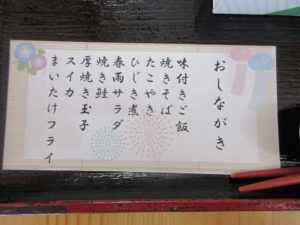 おしながき
味付きご飯
焼きそば
たこやき
ひじき煮
春雨サラダ
焼き鮭
厚焼き玉子
スイカ
まいたけフライ